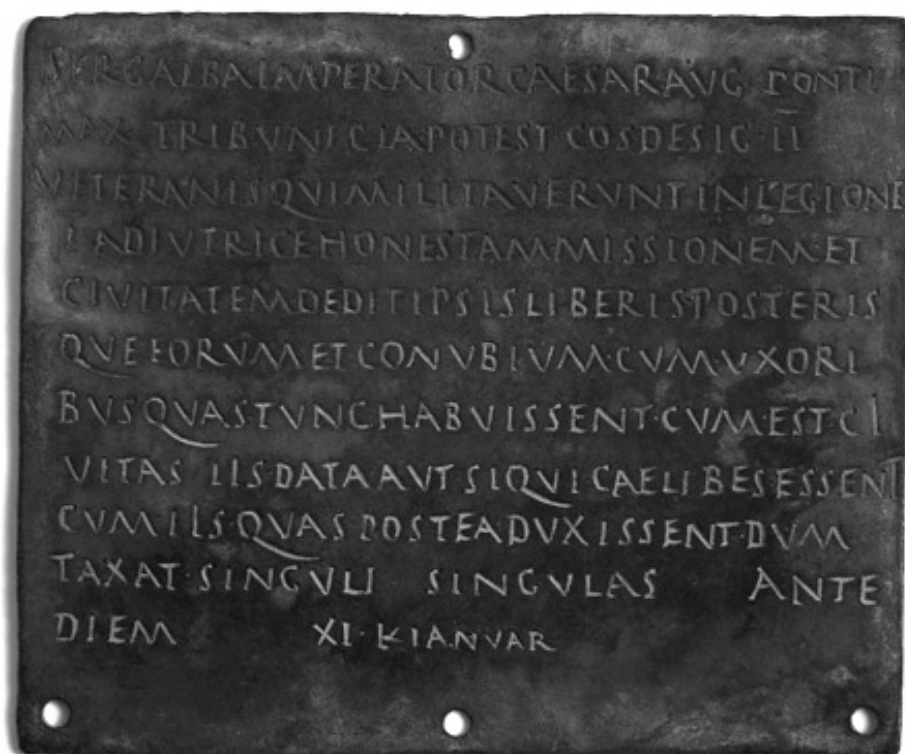 SER GALBA IMPERATOR CAESAR AVG PONTI
MAX TRIBVNICIA POTEST COS DESIG II
VETERANIS QVI MILITAVERVNT IN LEGIONE
I ADIVTRICE HONESTAM MISSIONEM·ET
CIVITATEM DEDIT IPSIS LIBERIS POSTERIS
QVE EORVM ET CONVBIVM·CVM·VXORI
BVS QVAS TVNC HABVISSENT·CVM·EST·CI
VITAS IIS DATA·AVT SI QVI CAELIBES ESSENT
CVM IIS QVAS POSTEA DVXISSENT·DVM
TAXAT·SINGVLI SINGVLAS ANTE
DIEM XI·K IANVAR